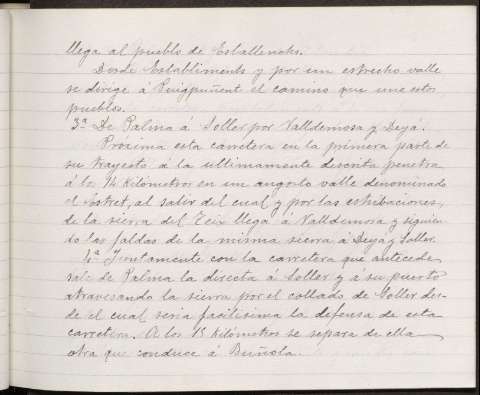 llega al pueblo de Esballenchs.
Desde Establiments y por un estrecho valle
se dirige á Puigpuñent el camino que une estos
pueblos.
3ª De Palma á Soller por Valldemosa y Deyá.
Próxima esta carretera en la primera parte de
su trayecto á la ultimamente descrita penetra
á los 14 kilómetros en un angosto valle denominado
el Estret, al salir del cual y por las estribaciones,
de la sierra del Teix llega á Valldemosa y siguien
do las faldas de la misma sierra á Deyá y Soller.
4ª Juntamente con la carretera que antecede,
sale de Palma la directa á Soller y á su puerto
atravesando la sierra por el collado de Soller des-
de el cual seria facilísima la defensa de esta
carretera. A los 15 kilómetros se separa de ella
otra que conduce á Buñola.